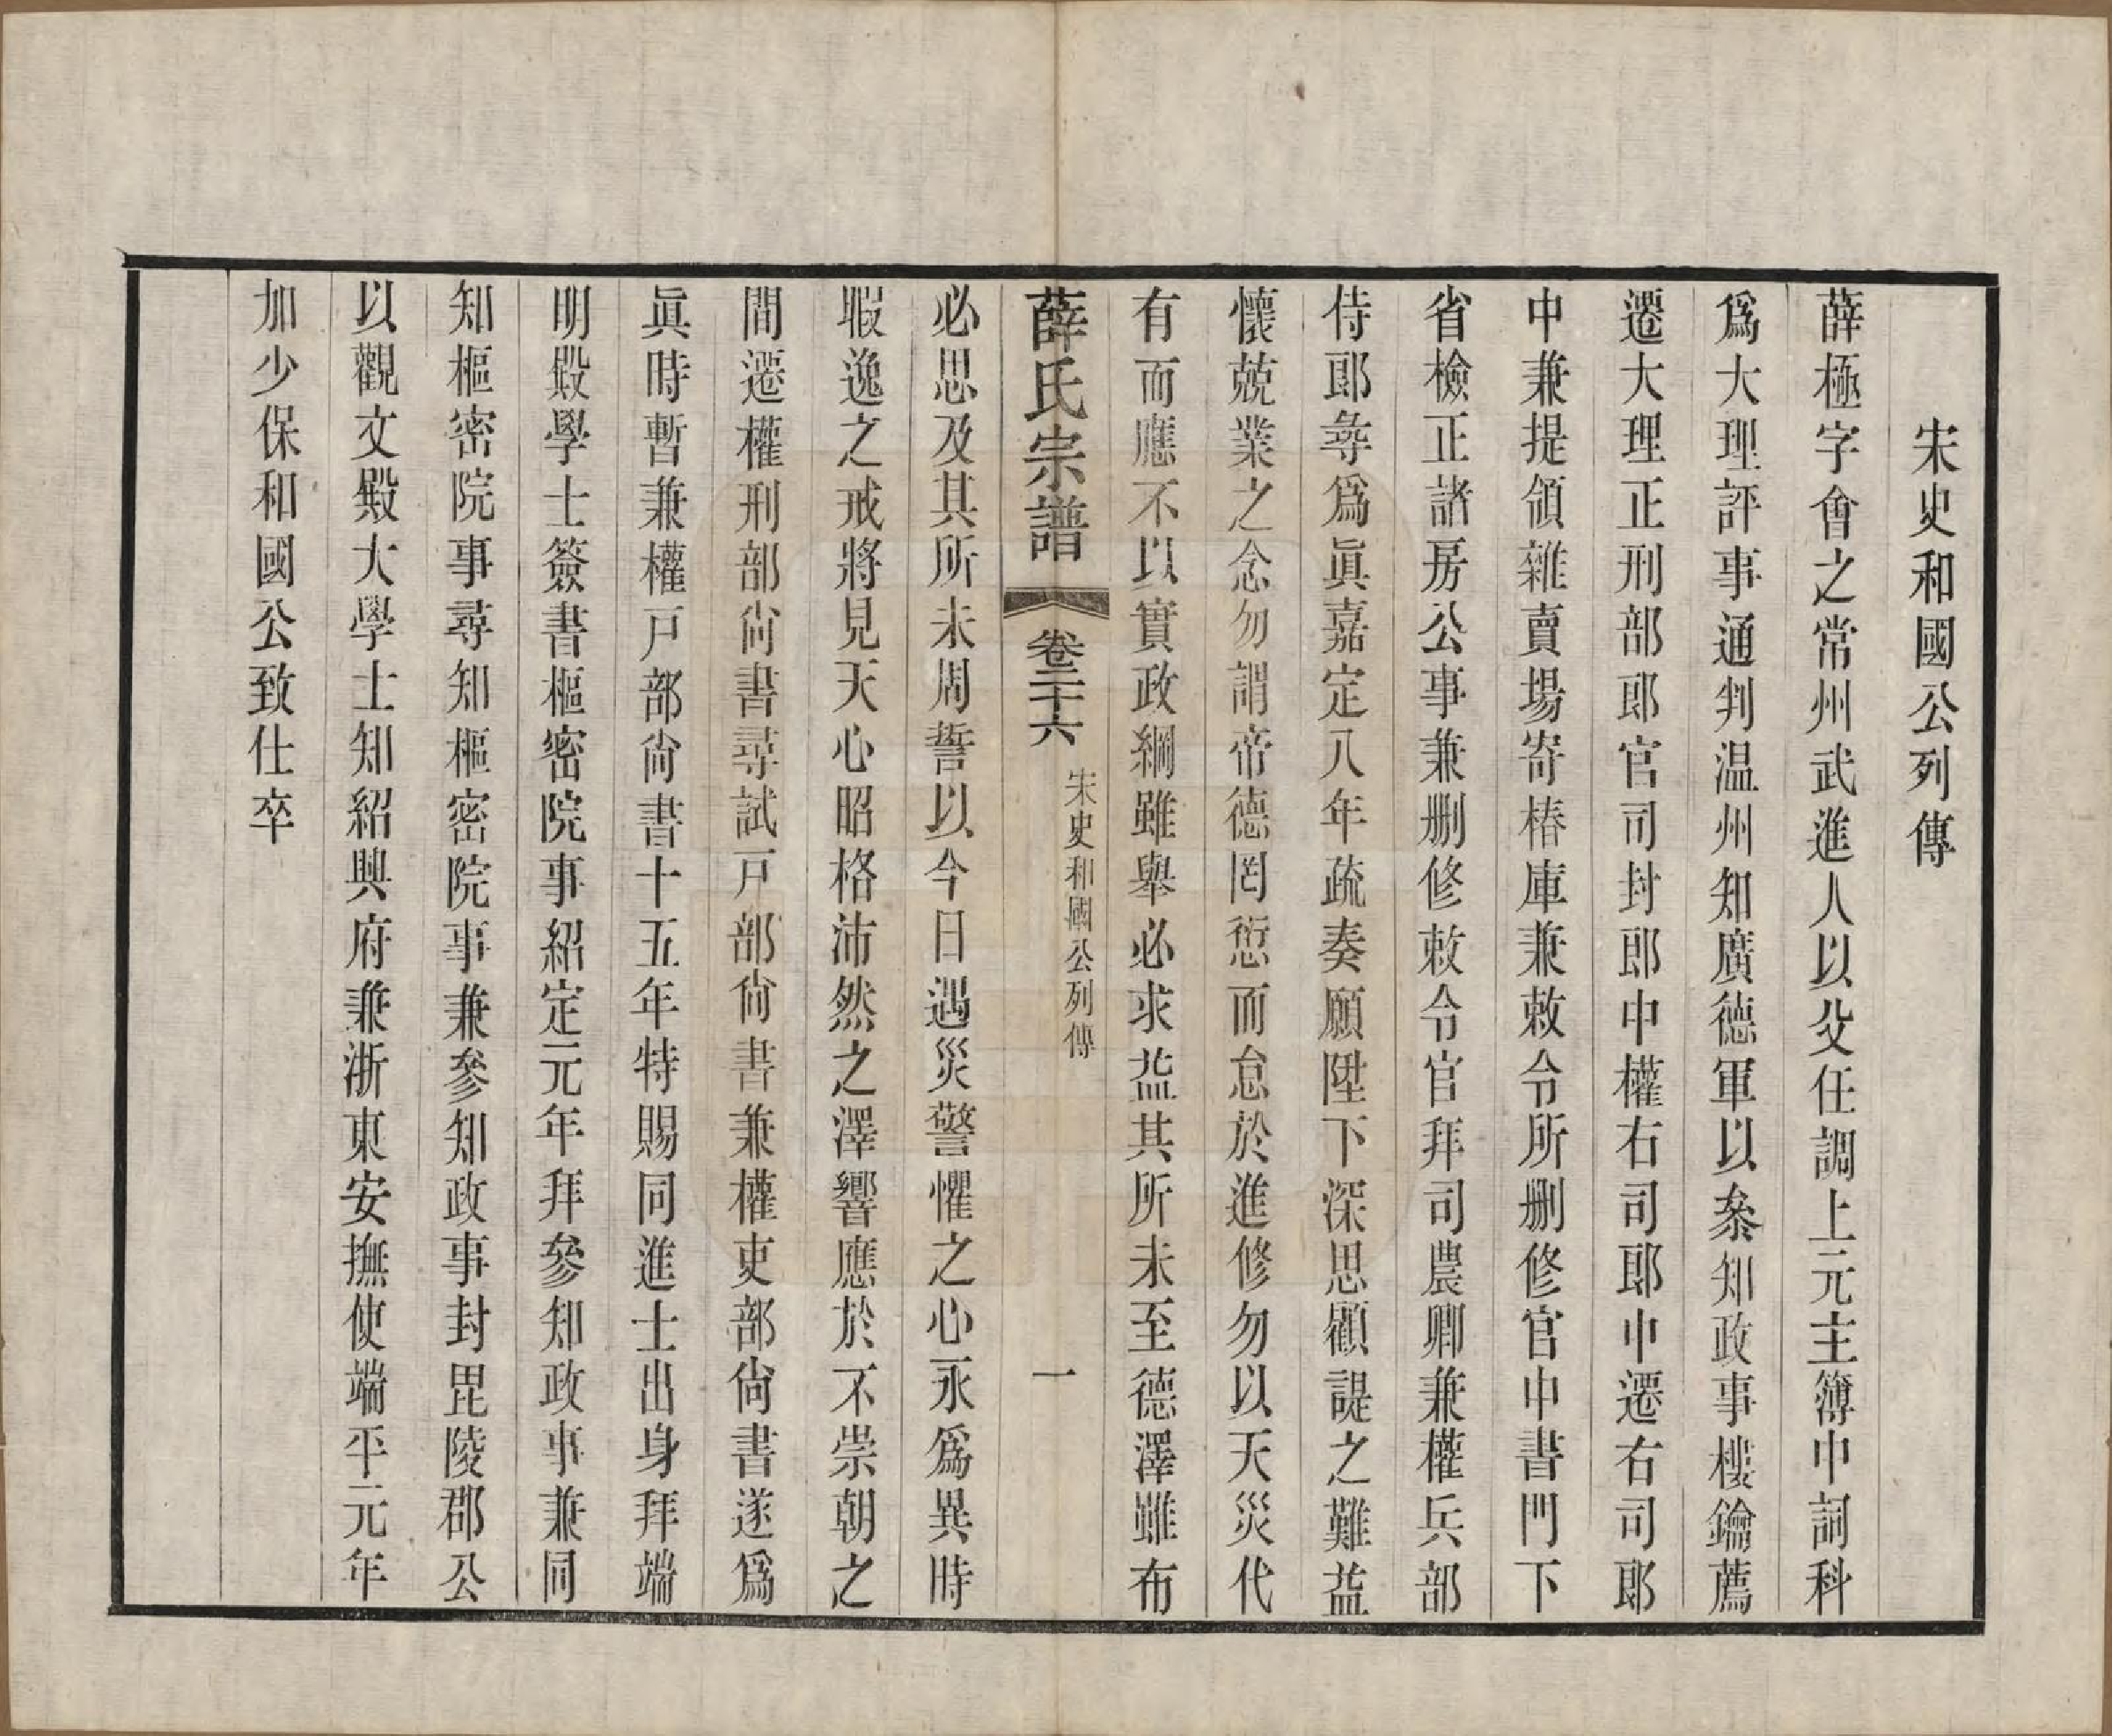 宋史和國公列傳
薛極字會之常州武進人以父任調上元主簿中詞科
爲大理評事通判温州知廣德軍以叅知政事樓鑰薦
遷大理正刑部郎官司封郎中權右司郎中遷右司郎
中兼提領雜賣場寄樁庫兼敕令所删修官中書門下
省檢正諸房公事兼删修敕令官拜司農卿兼權兵部
侍郎尋爲眞嘉定八年疏奏願陞下深思顧諟之難益
懷兢業之念勿謂帝德罔愆而怠於進修勿以天災代
有而應不以實政綱雖舉必求益其所未至德澤雖布
薛氏宗譜 卷二十六 宋史和國公列傳 一
必思及其所未周誓以今日遇災警懼之心永爲異時
暇逸之戒將見天心昭格沛然之澤響應於不崇朝之
間遷權刑部尙書尋試戸部尙書兼權吏部尙書遂爲
眞時暫兼權戸部尙書十五年特賜同進士出身拜端
明殿學士簽書樞密院事紹定元年拜參知政事兼同
知樞密院事尋知樞密院事兼參知政事封毘陵郡公
以觀文殿大學士知紹興府兼浙東安撫使端平元年
加少保和國公致仕卒